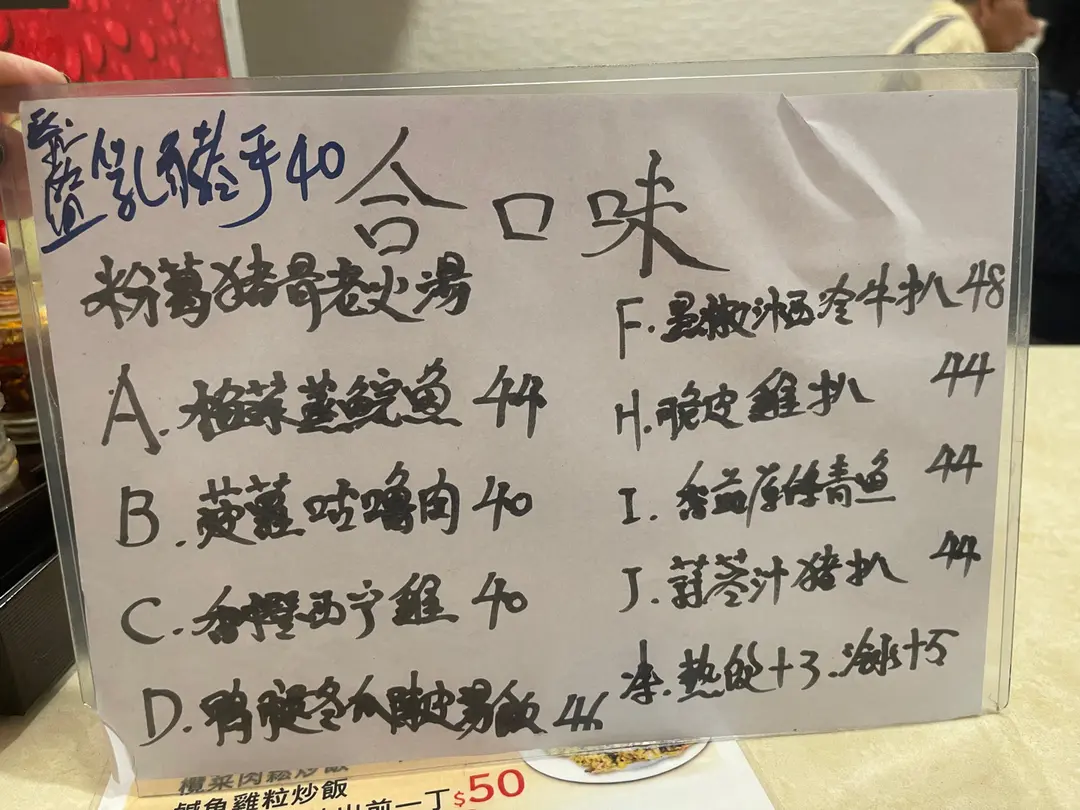 乳豬手40
合口味
粉葛猪骨老火湯
A. 榄菜蒸鲩魚 44
B. 菠蘿咕嚕肉 40
C. 香橙西宁雞 40
D. 鸭腿冬瓜陳皮湯飯 46
F. 黑椒汁西冷牛扒 48
H. 脆皮雞扒 44
I. 香煎厚修青魚 44
J. 蒜茸汁猪扒 44
热飲+3.凍+5
欖菜肉鬆炒飯
鹹魚雞粒炒飯
出前一丁 $50